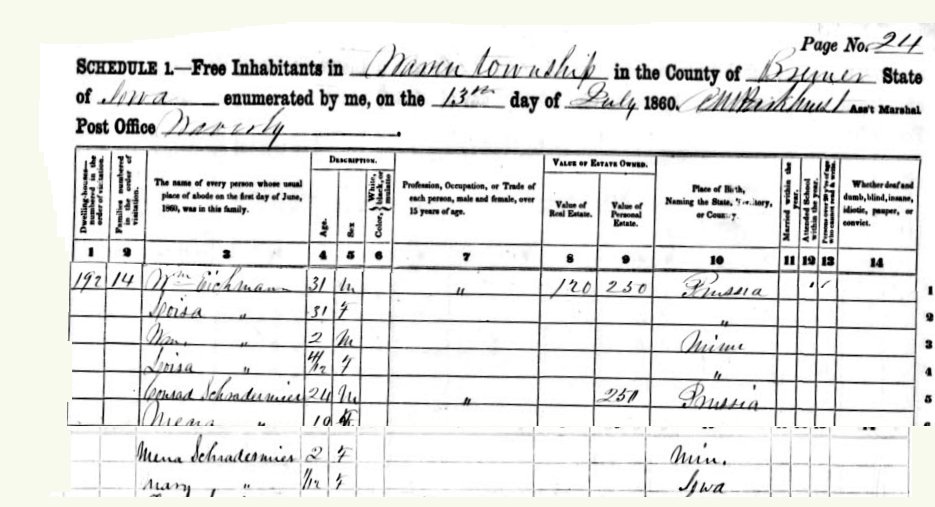 Page No. 24
SCHEDULE 1.—Free Inhabitants in Warren township in the County of Bremer State
of Iowa enumerated by me, on the 13th day of July 1860. Ass't Marshal
Post Office Waverly.
Dwelling-houses—numbered in the order of visitation.
Families numbered in the order of visitation.
The name of every person whose usual place of abode on the first day of June, 1860, was in this family.
DESCRIPTION.
Age.
Sex
Color, White, black, or mulatto
Profession, Occupation, or Trade of each person, male and female, over 15 years of age.
VALUE OF ESTATE OWNED.
Value of Real Estate.
Value of Personal Estate.
Place of Birth, Naming the State, Territory, or Country.
Married within the year.
Attended School within the year.
Persons over 20 y'rs of age who cannot read & write.
Whether deaf and dumb, blind, insane, idiotic, pauper, or convict.
1 2 3 4 5 6 7 8 9 10 11 12 13 14
192 14 Wm Eichmann 31 M " 120 250 Prussia 1 1 1
Loisa " 31 F " 2
Wm. " 2 M Minn 3
Loisa " 4/12 F " 4
Conrad Schradermier 24 M " 250 Prussia 5
Mena " 19 F
Mena Schradesmier 2 F Min.
Mary " 1/12 F Iowa